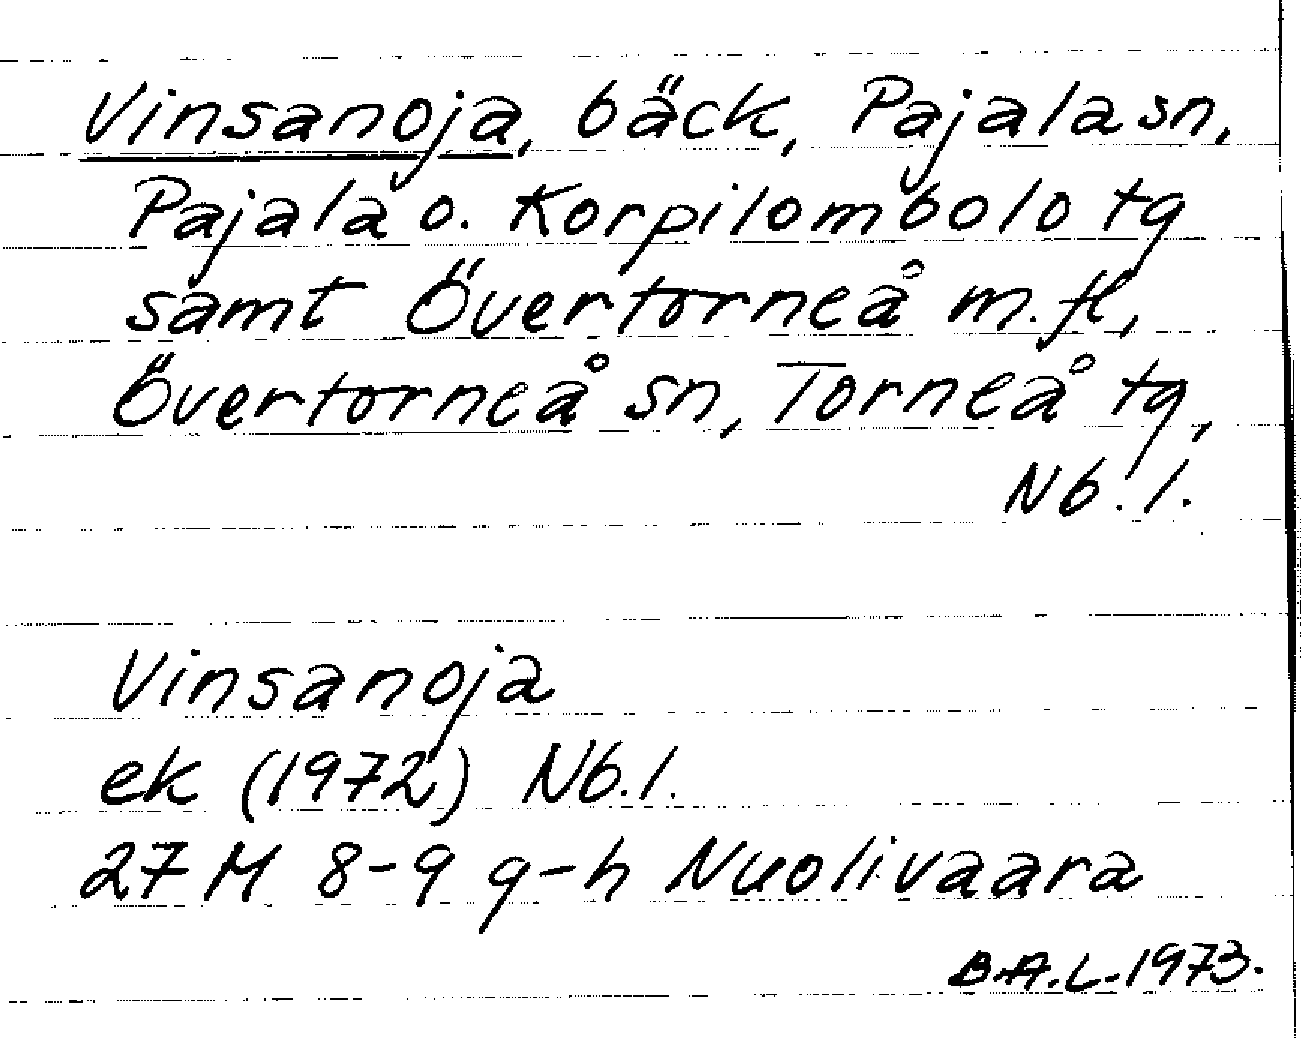 Vinsanoja, bäck, Pajala sn,
Pajala o. Korpilombolo tg
samt Övertorneå m.fl,
Övertorneå sn, Torneå tg,
Nb. l.
Vinsanoja
ek (1972) Nb. l.
27 M 8-9 g-h Nuolivaara
B.A.L. 1973.